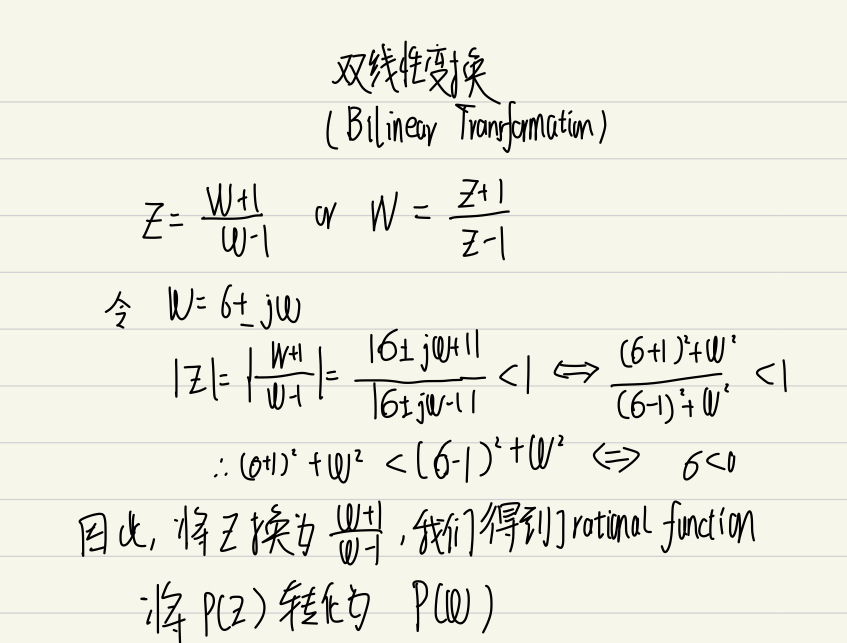 双线性变换
(Bilinear Transformation)
Z = (W+1)/(W-1) or W = (Z+1)/(Z-1)
令 W = σ ± jω
|Z| = |(W+1)/(W-1)| = |σ ± jω+1|/|σ ± jω-1| < 1 ⟺ ((σ+1)²+ω²)/((σ-1)²+ω²) < 1
∴ (σ+1)² + ω² < (σ-1)² + ω² ⟺ σ<0
因此, 将 Z 换为 (W+1)/(W-1), 我们得到了 rational function
将 P(Z) 转化为 P(W)